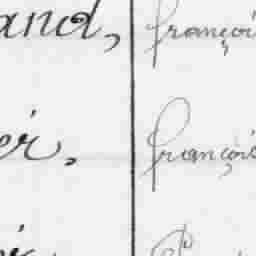 and, françoi
er, françois